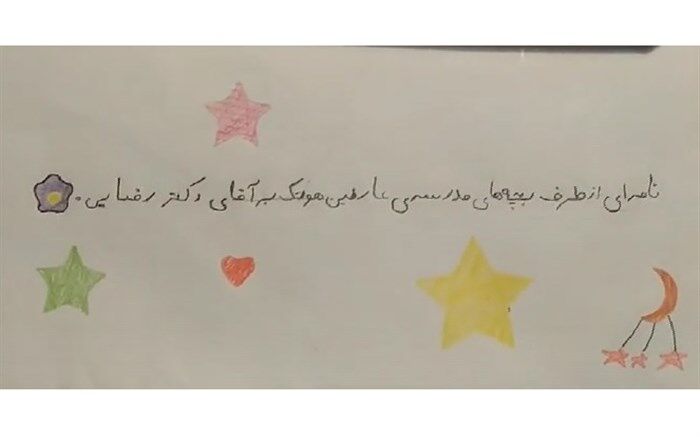 نامه‌ای از طرف بچه‌های مدرسه‌ی عارفین هوتگ به آقای دکتر رضایی.